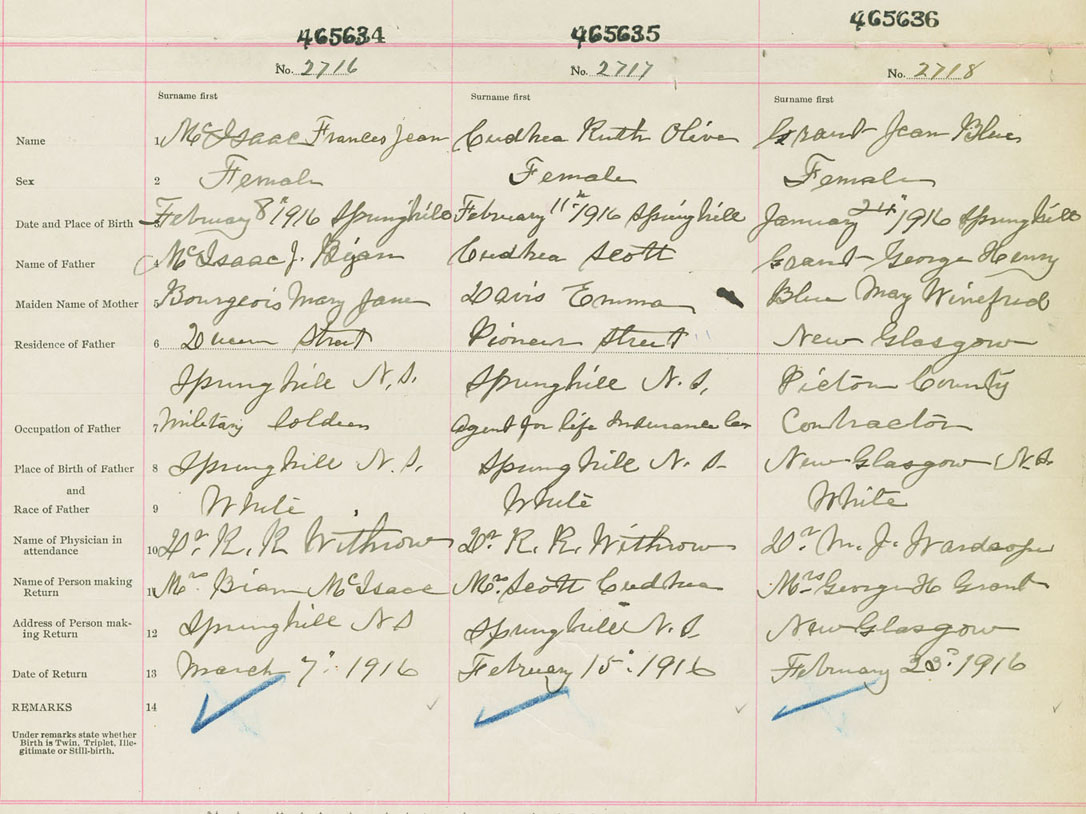 465634 465635 465636
No. 2716 No. 2717 No. 2718
Surname first Surname first Surname first
Name 1 McIsaac Frances Jean Cudhea Ruth Olive Grant Jean Blue
Sex 2 Female Female Female
Date and Place of Birth February 8" 1916 Springhill February 11th 1916 Springhill January 24" 1916 Springhill
Name of Father 4 McIsaac J. Cudhea Scott Grant George Henry
Maiden Name of Mother 5 Bourgeois Mary Jane Davis Emma Blue May Winefred
Residence of Father 6 Queen Street Pioneer Street New Glasgow
Springhill N.S. Springhill N.S. Pictou County
Occupation of Father 7 Military Soldier Agent for life Insurance Contractor
Place of Birth of Father 8 Springhill N.S. Springhill N.S. New Glasgow N.S.
and
Race of Father 9 White White White
Name of Physician in
attendance 10 Dr. R. R. Withrow Dr. R. R. Withrow Dr. M. J. Wardrope
Name of Person making
Return 11 Mrs. McIsaac Mrs. Scott Cudhea Mrs George H Grant
Address of Person mak-
ing Return 12 Springhill N.S Springhill N.S. New Glasgow
Date of Return 13 March 7". 1916 February 15". 1916 February 23". 1916
REMARKS 14
Under remarks state whether
Birth is Twin, Triplet, Ille-
gitimate or Still-birth.